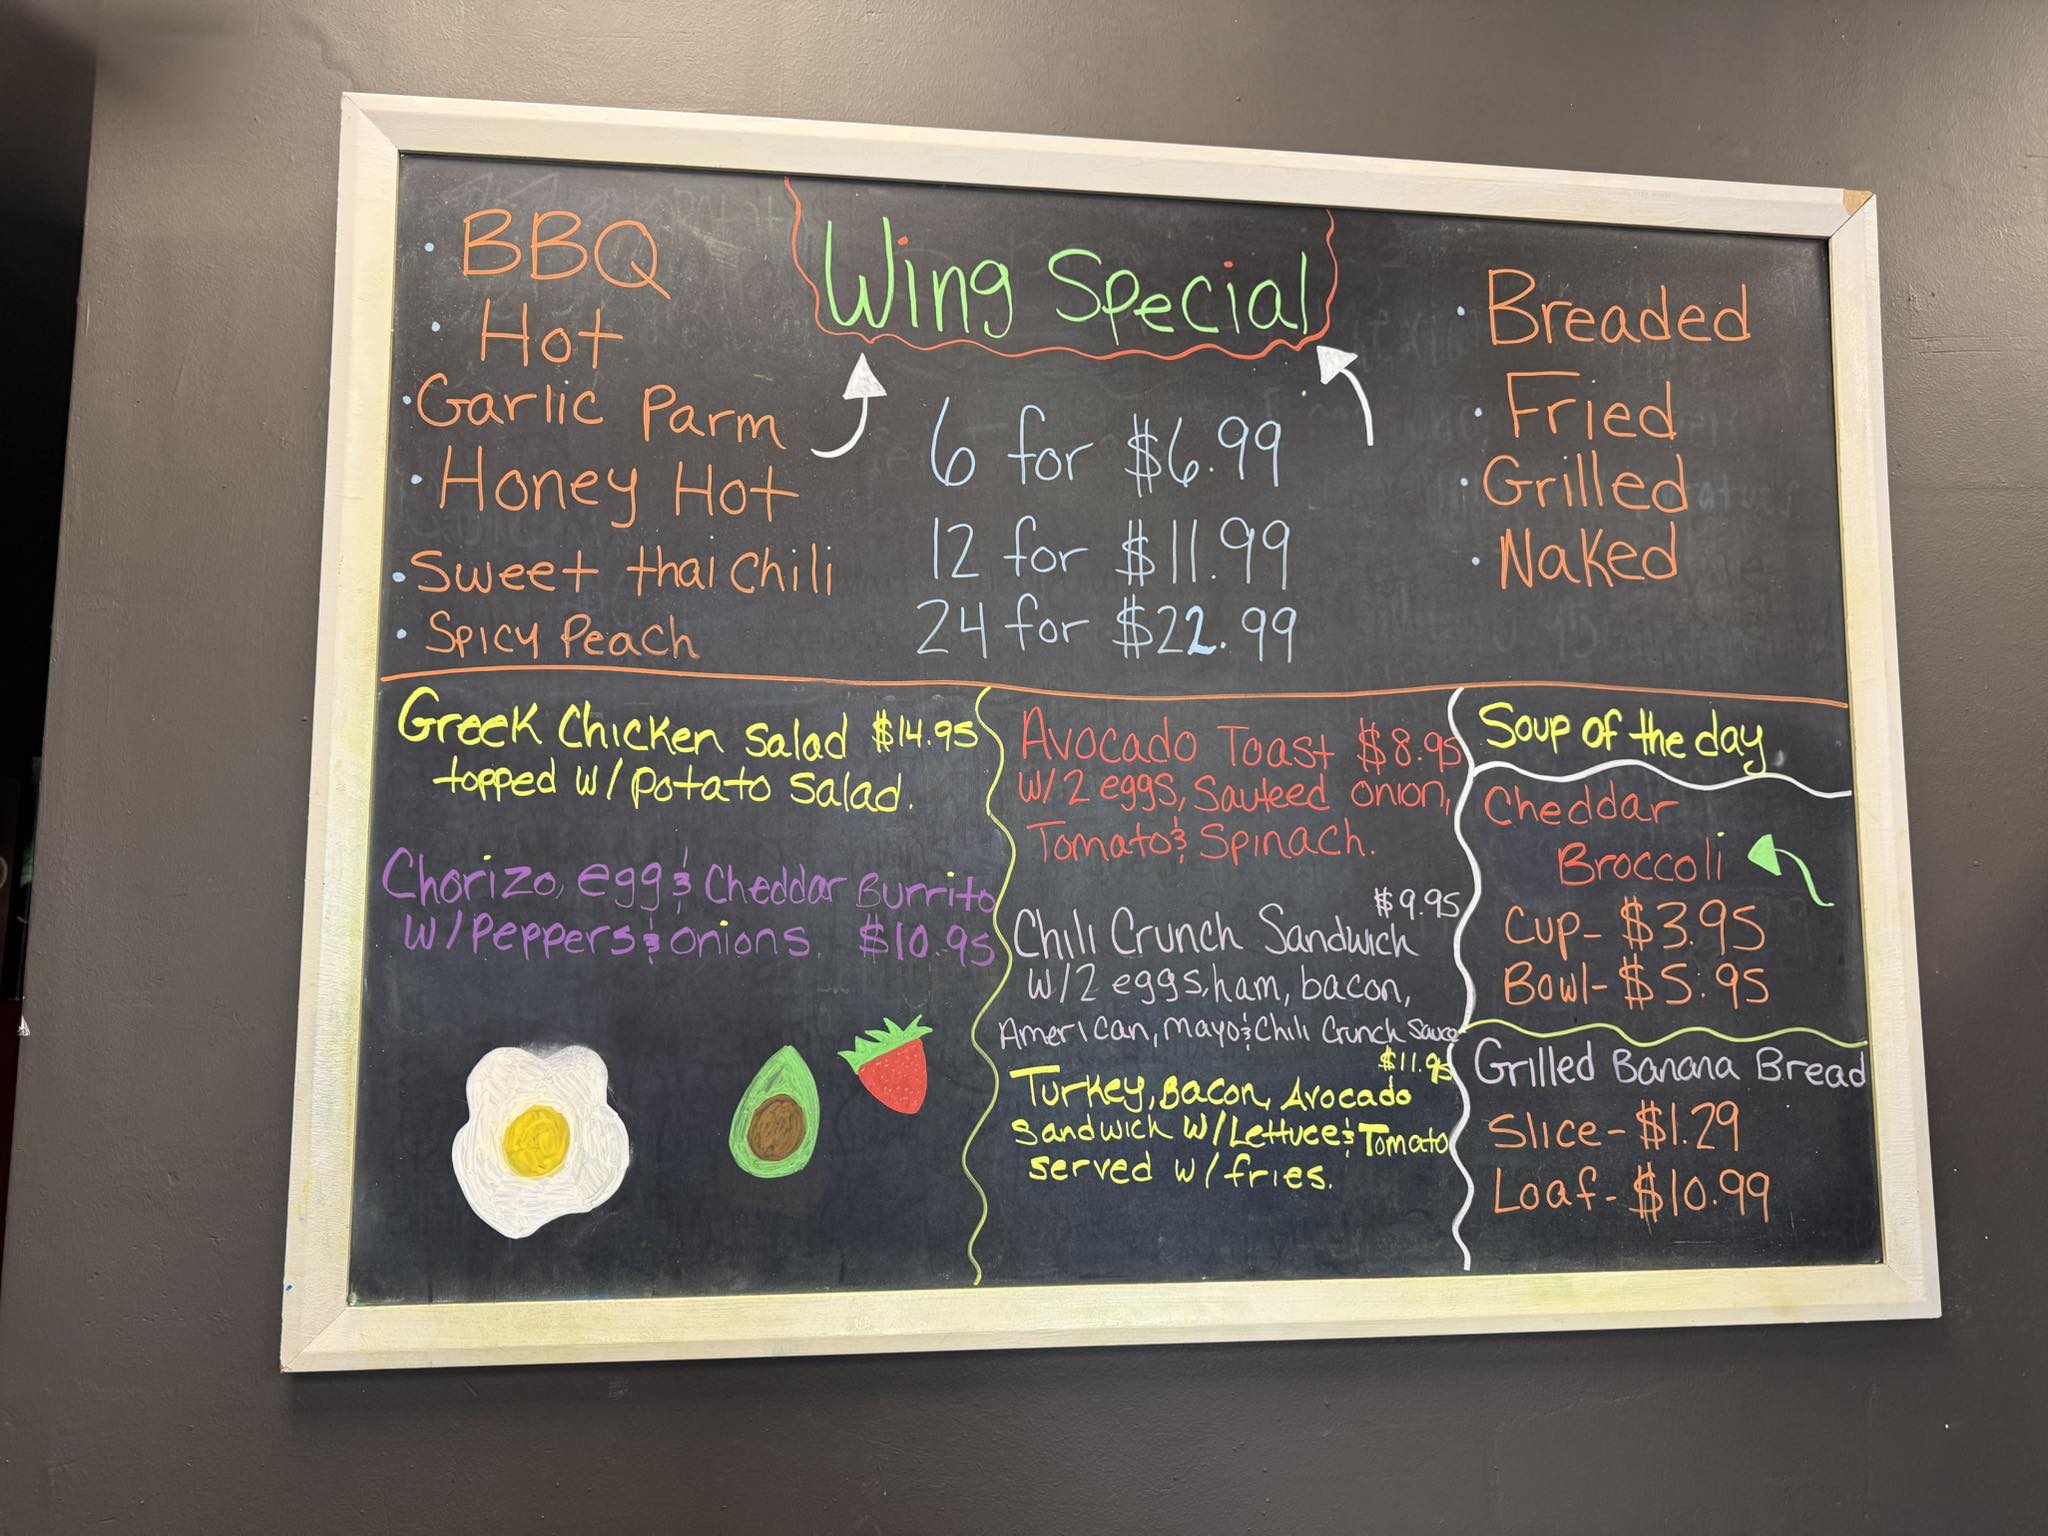 Wing Special
BBQ
Hot
Garlic Parm
Honey Hot
Sweet thai Chili
Spicy Peach
6 for $6.99
12 for $11.99
24 for $22.99
Breaded
Fried
Grilled
Naked
Greek Chicken Salad $14.95
topped w/ potato salad.
Chorizo, egg & Cheddar Burrito
w/ Peppers & onions. $10.95
Avocado Toast $8.95
w/ 2 eggs, Sauteed onion,
Tomato & Spinach.
$9.95
Chili Crunch Sandwich
w/ 2 eggs, ham, bacon,
American, mayo & Chili Crunch Sauce
$11.95
Turkey, Bacon, Avocado
Sandwich w/ Lettuce & Tomato
served w/ fries.
Soup of the day
Cheddar
Broccoli
Cup- $3.95
Bowl- $5.95
Grilled Banana Bread
Slice- $1.29
Loaf- $10.99